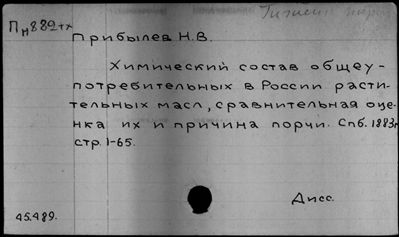 Пн882+х
Прибылев Н.В.
Химический состав общеу-
потребительных в России расти-
тельных масл, сравнительная оце-
нка их и причина порчи. Спб. 1883г
стр. 1-65.
Дисс.
45.489.